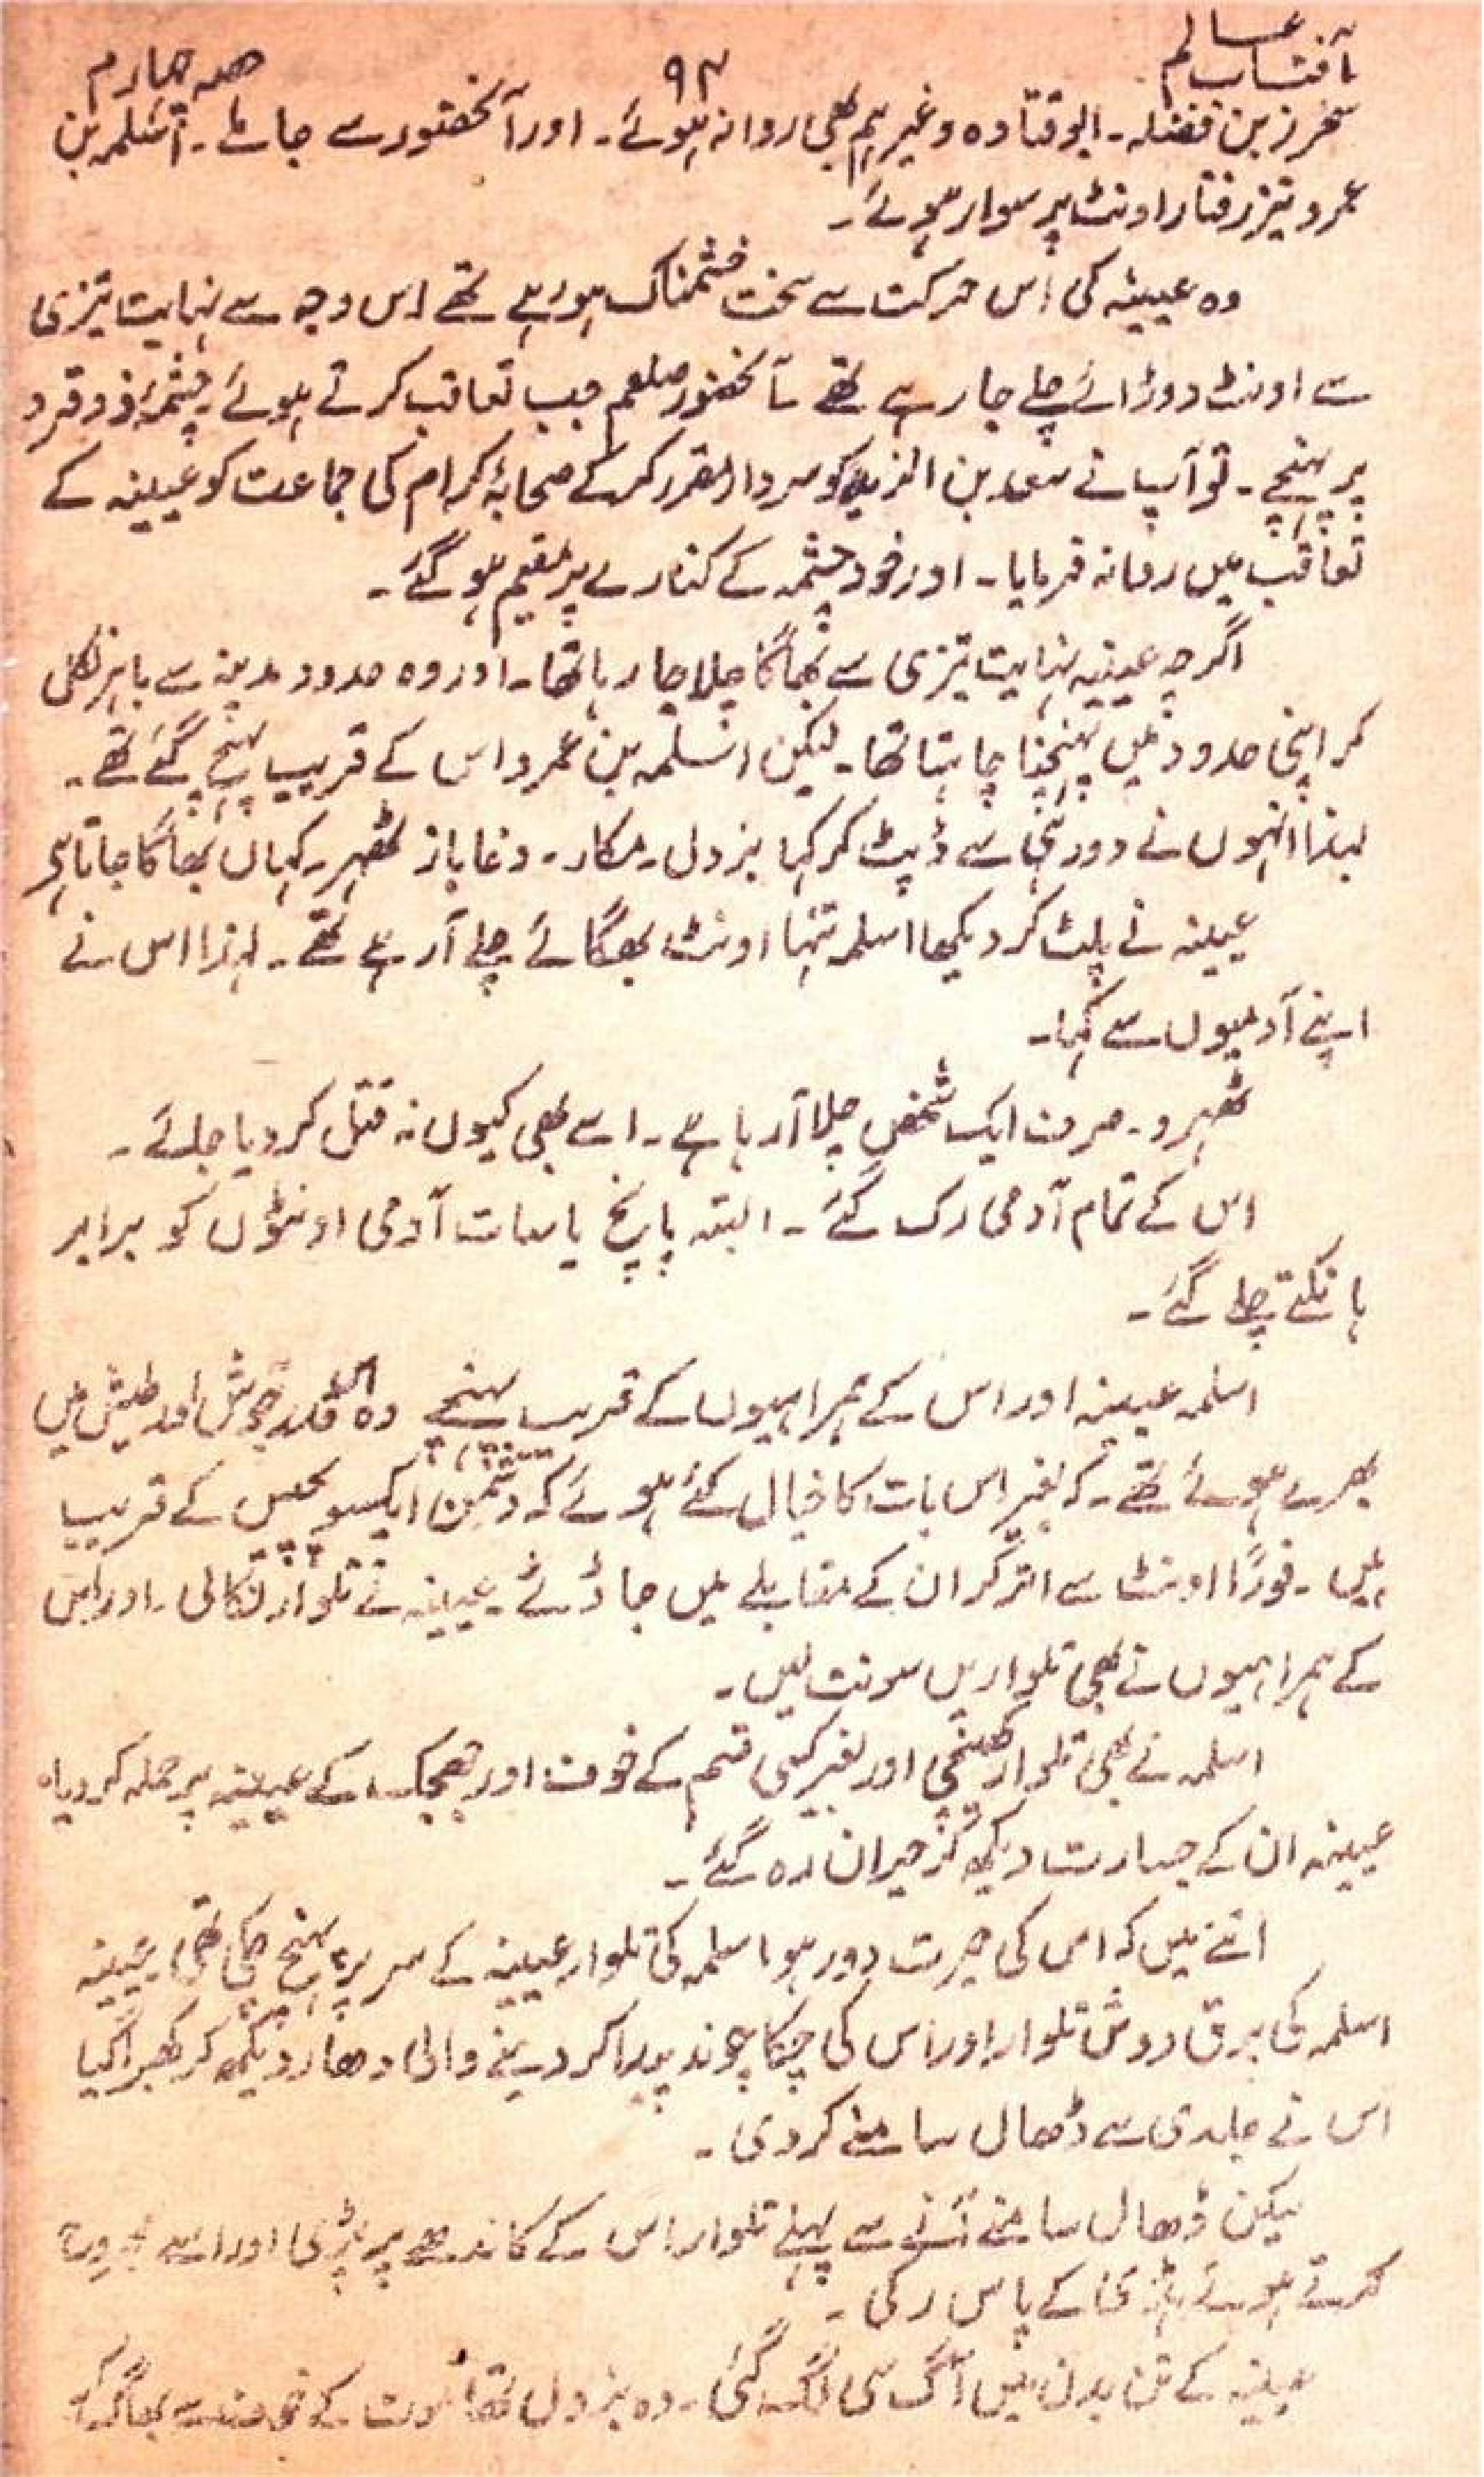 آفتاب عالم
۹۴
حصہ چہارم
محرز بن فضلہ۔ ابوقتادہ وغیرہم بھی روانہ ہوئے۔ اور آنحضورؐ سے جا ملے۔ اسلمہ بن
عمرو تیز رفتار اونٹ پر سوار ہوئے۔
وہ عیینہ کی اس حرکت سے سخت خشمناک ہو رہے تھے اس وجہ سے نہایت تیزی
سے اونٹ دوڑائے چلے جا رہے تھے آنحضور صلعم جب تعاقب کرتے ہوئے چشمۂ ذوقرد
پر پہنچے۔ تو آپ نے سعد بن الزید کو سردار مقرر کر کے صحابۂ کرام کی جماعت کو عیینہ کے
تعاقب میں روانہ فرمایا۔ اور خود چشمہ کے کنارے پر مقیم ہو گئے۔
اگرچہ عیینہ نہایت تیزی سے بھاگا چلا جا رہا تھا۔ اور وہ حدود مدینہ سے باہر نکل
کر اپنی حدود میں پہنچنا چاہتا تھا۔ لیکن اسلمہ بن عمرو اس کے قریب پہنچ گئے تھے۔
لہذا انہوں نے دور ہی سے ڈپٹ کر کہا بزدل۔ مکار۔ دغاباز ٹھہر۔ کہاں بھاگا جاتا ہے
عیینہ نے پلٹ کر دیکھا اسلمہ تنہا اونٹ بھگائے چلے آ رہے تھے۔ لہذا اس نے
اپنے آدمیوں سے کہا۔
ٹھہرو۔ صرف ایک شخص چلا آ رہا ہے۔ اسے بھی کیوں نہ قتل کر دیا جائے۔
اس کے تمام آدمی رک گئے۔ البتہ پانچ یا سات آدمی اونٹوں کو برابر
ہانکتے چلے گئے۔
اسلمہ عیینہ اور اس کے ہمراہیوں کے قریب پہنچے وہ اسقدر جوش اور طیش میں
بھرے ہوئے تھے۔ کہ بغیر اس بات کا خیال کئے ہوئے کہ دشمن ایکسو پچیس کے قریب
ہیں۔ فوراً اونٹ سے اتر کر ان کے مقابلے میں جا ڈٹے۔ عیینہ نے تلوار نکالی۔ اور اس
کے ہمراہیوں نے بھی تلواریں سونت لیں۔
اسلمہ نے بھی تلوار کھینچی اور بغیر کسی قسم کے خوف اور جھجک کے عیینہ پر حملہ کر دیا۔
عیینہ ان کے جسارت دیکھ کر حیران رہ گئے۔
اتنے میں کہ اس کی حیرت دور ہو اسلمہ کی تلوار عیینہ کے سر پر پہنچ چکی تھی۔ عیینہ
اسلمہ کی برق روش تلوار اور اس کی چکاچوند پیدا کر دینے والی دھار دیکھ کر گھبرا گیا
اس نے جلدی سے ڈھال سامنے کر دی۔
لیکن ڈھال سامنے آنے سے پہلے تلوار اس کے کاندھے پر پڑی اور اسے مجروح
کرتے ہوئے ہڈی کے پاس رکی۔
عیینہ کے تن بدن میں آگ سی لگ گئی۔ وہ بزدل تھا موت کے خوف سے بھاگ